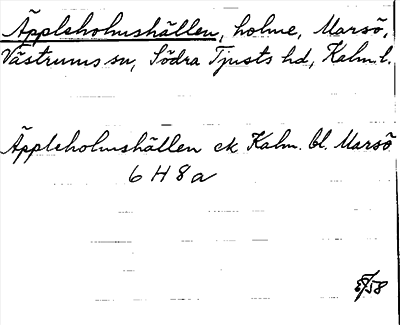 Äppleholmshällen, holme, Marsö,
Västrums sn, Södra Tjusts hd, Kalm. l.
Äppleholmshällen ek Kalm. bl. Marsö
6 H 8 a